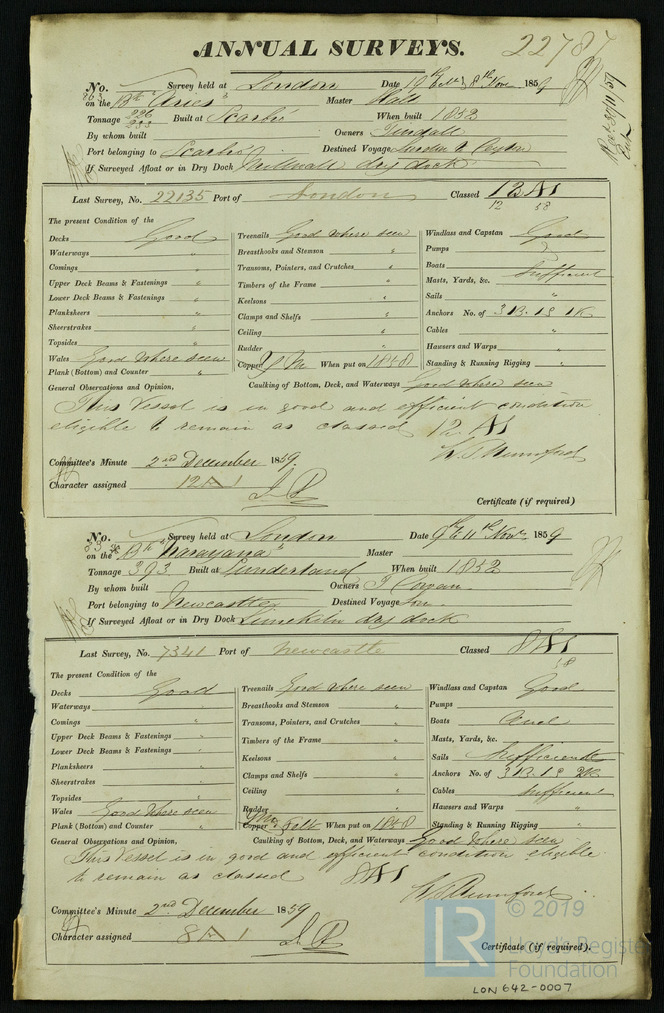 ANNUAL SURVEYS. 22787
No. Survey held at London Date 19th Octr 8th Nov. 1859
on the Bk "Aries" Master Hall
Tonnage 226 233 Built at Scarbro When built 1852
By whom built Owners Tindall
Port belonging to Scarbro Destined Voyage London to Ceylon
If Surveyed Afloat or in Dry Dock Millwall dry dock
Last Survey, No. 22135 Port of London Classed 12 A1
12 58
The present Condition of the
Decks Good Treenails Good where seen Windlass and Capstan Good
Waterways " Breasthooks and Stemson " Pumps
Comings " Transoms, Pointers, and Crutches " Boats
Upper Deck Beams & Fastenings " Timbers of the Frame " Masts, Yards, &c. Sufficient
Lower Deck Beams & Fastenings " Keelsons " Sails "
Planksheers " Clamps and Shelfs " Anchors No. of 3 B. 1 S 1 K
Sheerstrakes " Ceiling " Cables "
Topsides " Rudder " Hawsers and Warps "
Wales Good where seen Copper Y M When put on 1858 Standing & Running Rigging "
Plank (Bottom) and Counter "
General Observations and Opinion, Caulking of Bottom, Deck, and Waterways Good where seen
This Vessel is in good and efficient condition
eligible to remain as classed 12 A1
Committee's Minute 2nd December 1859.
Character assigned 12 A 1
Certificate (if required)
No. Survey held at London Date 9th & 11th Novr 1859
on the Bk "Narayana" Master
Tonnage 393 Built at Sunderland When built 1852
By whom built Owners T Cowan
Port belonging to Newcastle Destined Voyage
If Surveyed Afloat or in Dry Dock Limekiln dry dock
Last Survey, No. 7341 Port of Newcastle Classed 8 A1
58
The present Condition of the
Decks Good Treenails Good where seen Windlass and Capstan Good
Waterways " Breasthooks and Stemson " Pumps
Comings " Transoms, Pointers, and Crutches " Boats and
Upper Deck Beams & Fastenings " Timbers of the Frame " Masts, Yards, &c.
Lower Deck Beams & Fastenings " Keelsons " Sails Sufficient
Planksheers " Clamps and Shelfs " Anchors No. of 3 B. 1 S 2 K
Sheerstrakes " Ceiling " Cables Sufficient
Topsides " Rudder " Hawsers and Warps "
Wales Good where seen Copper Y M & Felt When put on 1858 Standing & Running Rigging "
Plank (Bottom) and Counter "
General Observations and Opinion, Caulking of Bottom, Deck, and Waterways Good where seen
This Vessel is in good and efficient condition eligible
to remain as classed 8 A1
Committee's Minute 2nd December 1859
Character assigned 8 A 1
Certificate (if required).
© 2019
LR Lloyd's Register
Foundation
LON 642-0007